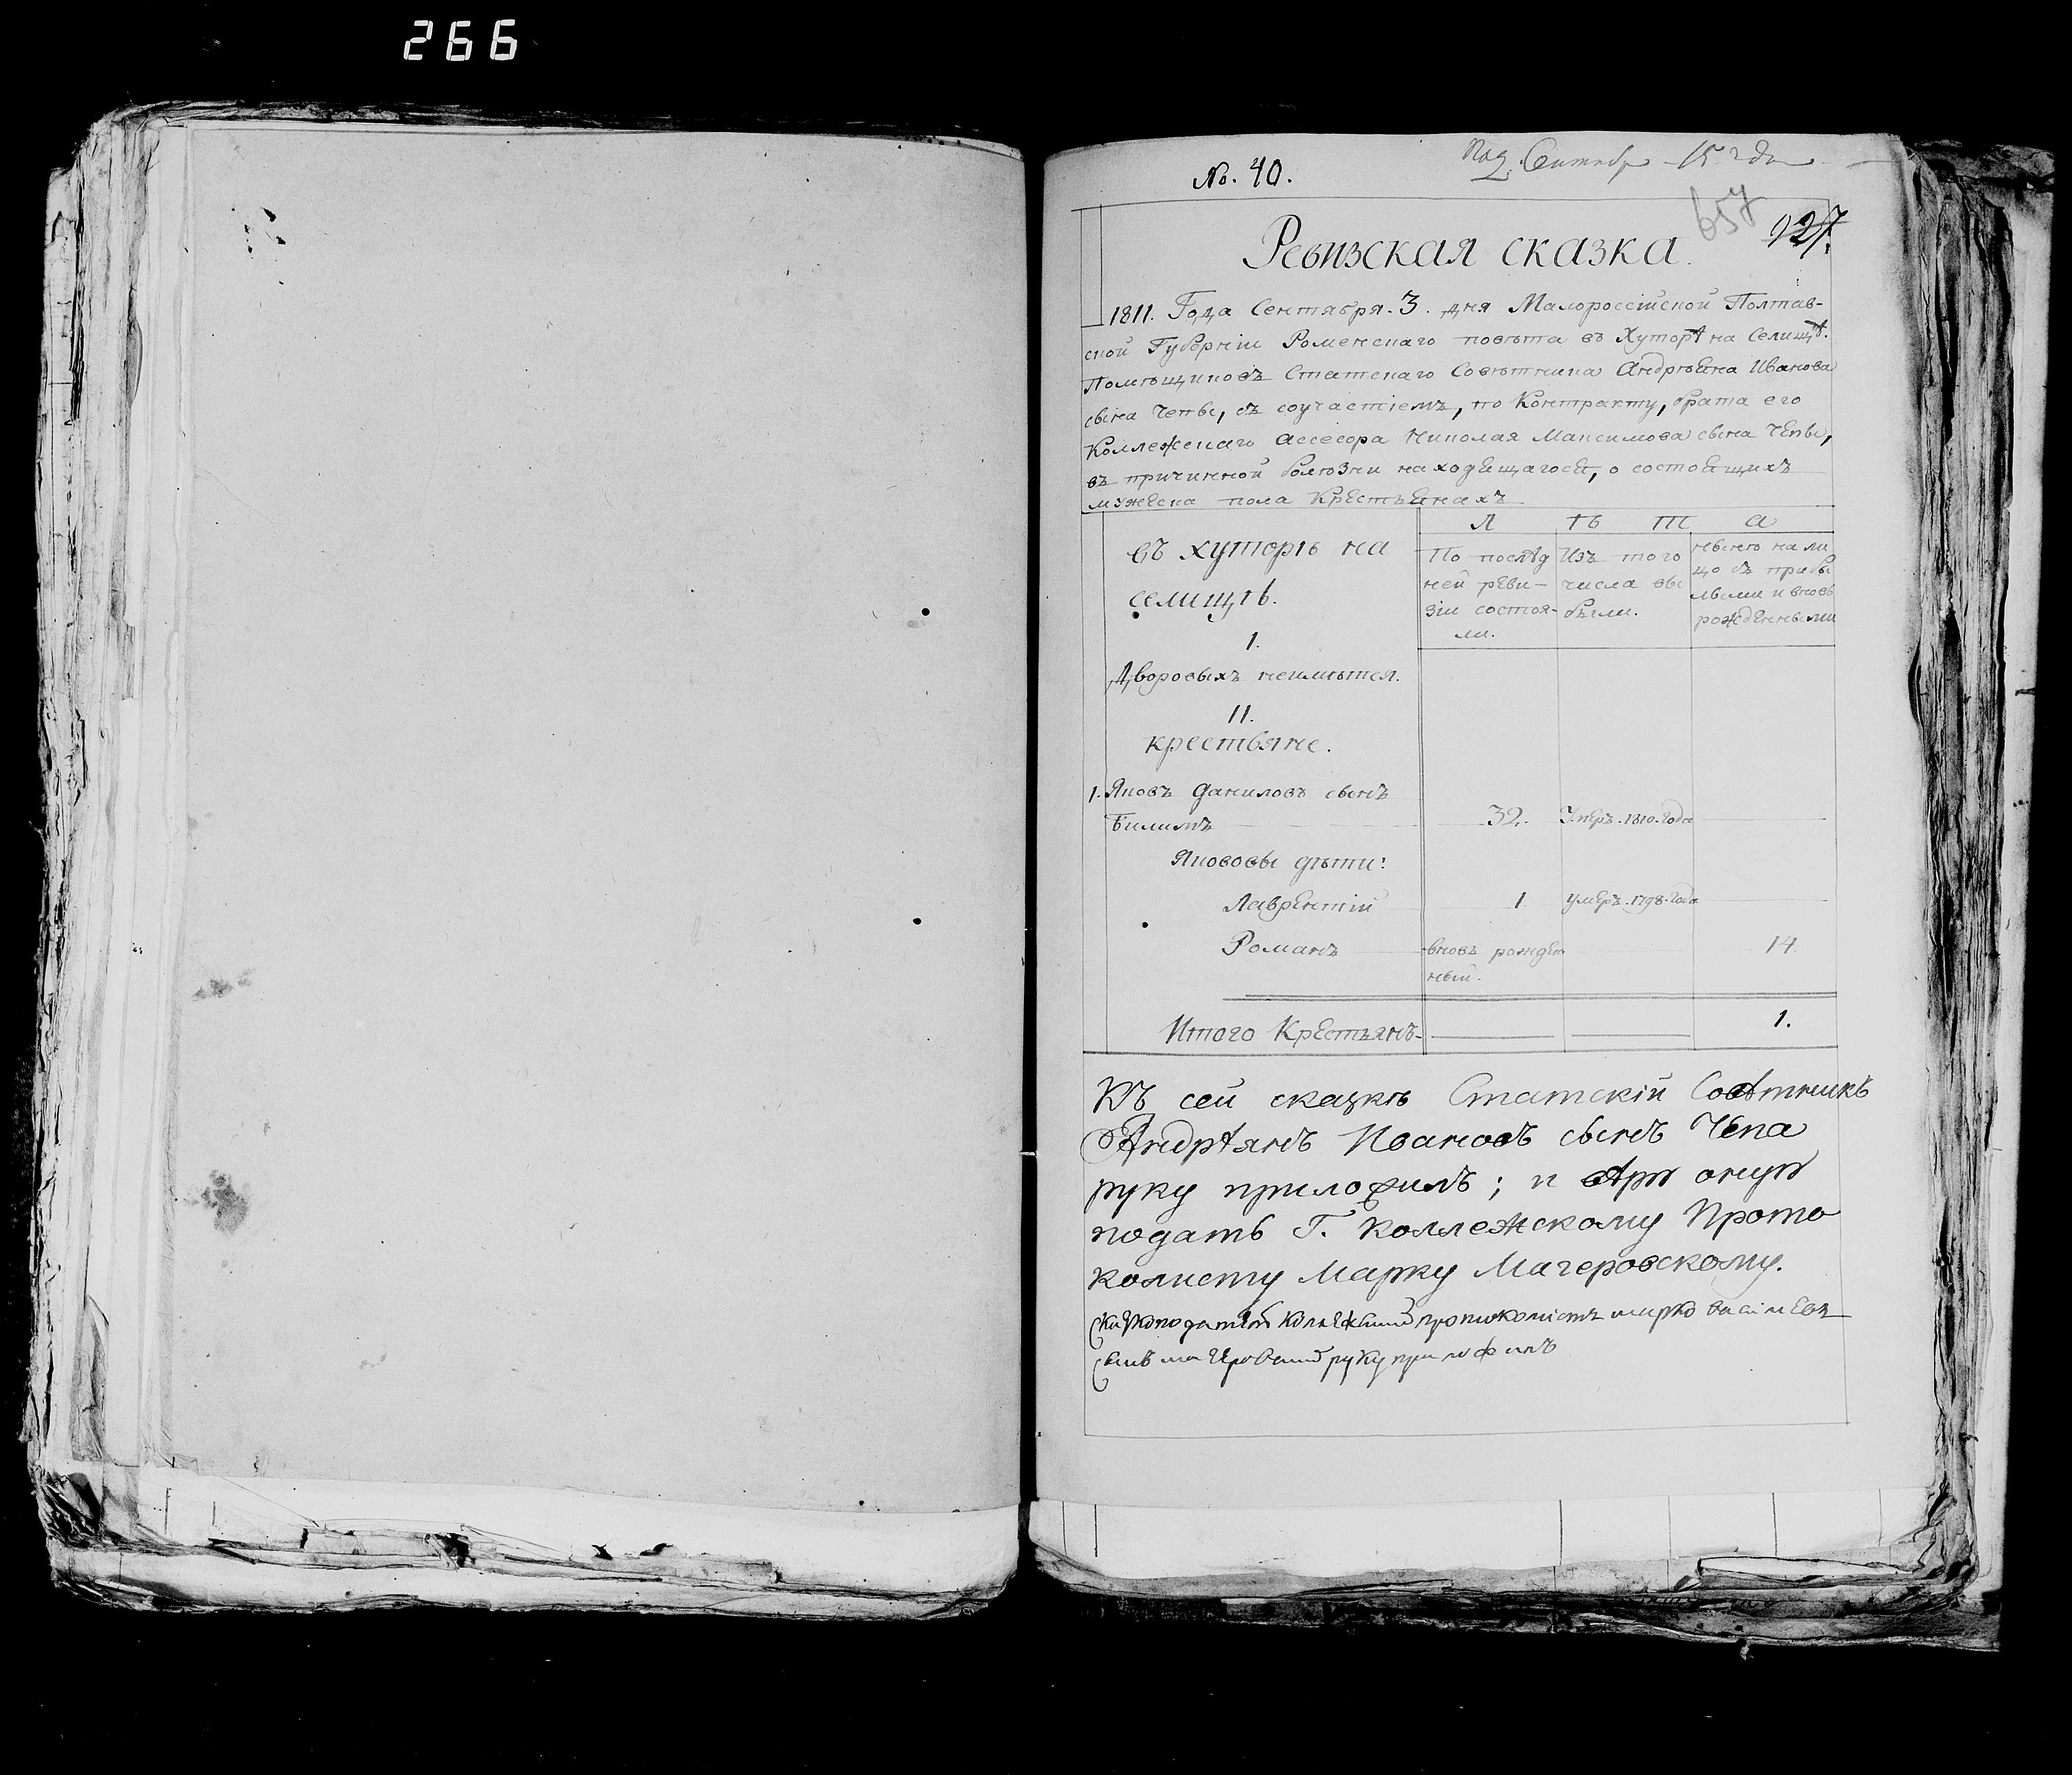 266
No. 40.
Под. Сентябр 15 дня
657
127.
Ревизская сказка.
1811. Года Сентября. 3. дня Малороссійской Полтав-
ской Губерніи Роменскаго повѣта въ Хуторѣ на Селищѣ.
Помѣщиковъ Статскаго Совѣтника Андрѣяна Иванова
сына Чепы, съ соучастіемъ, по Контракту, брата его
Коллежскаго Ассесора Николая Максимова сына Чепы,
въ причинной болѣзни находящагося, о состоящихъ
мужеска пола Крестьянахъ
Л ѣ т а
въ хуторѣ на
селищѣ.
По послѣд
ней реви-
зіи состоя-
ли.
Изъ того
числа вы
были.
нынѣ на ли
цо съ прибы
лыми и вновь
рожденными
I.
Дворовыхъ неимѣтся.
II.
крестьяне.
1. Яковъ Даниловъ сынъ
Билимъ 32. Умеръ. 1810. Года
Якововы дѣти:
Лаврентій 1. умеръ. 1798. Года
Романъ вновь рожден 14.
ный.
Итого Крестьянъ- 1.
Къ сей сказкѣ Статскій Совѣтникъ
Андрѣянъ Ивановъ сынъ Чепа
руку приложилъ; и вѣрю оную
подать Г. Коллежскому Прото
колисту Марку Мачеровскому.
Скаскоподатель Колежский протоколистъ марко василевъ
сынъ мачеровский руку приложилъ